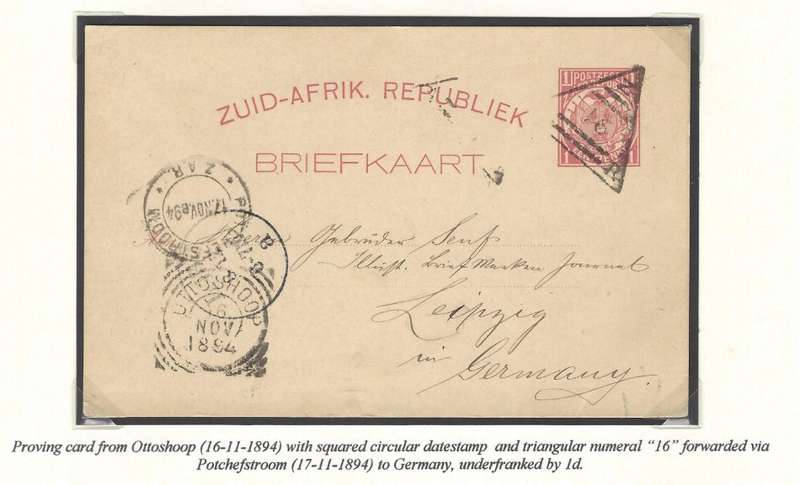 ZUID-AFRIK. REPUBLIEK
BRIEFKAART.
1 POSTZEGEL 1
16
Z.A.R.
17.NOV.94
POTCHEFSTROOM
OTTOSHOOP
16
NOV
1894
Gebrüder Senf
Illust. Brief Marken Journal
Leipzig
in
Germany.
Proving card from Ottoshoop (16-11-1894) with squared circular datestamp and triangular numeral “16” forwarded via
Potchefstroom (17-11-1894) to Germany, underfranked by 1d.